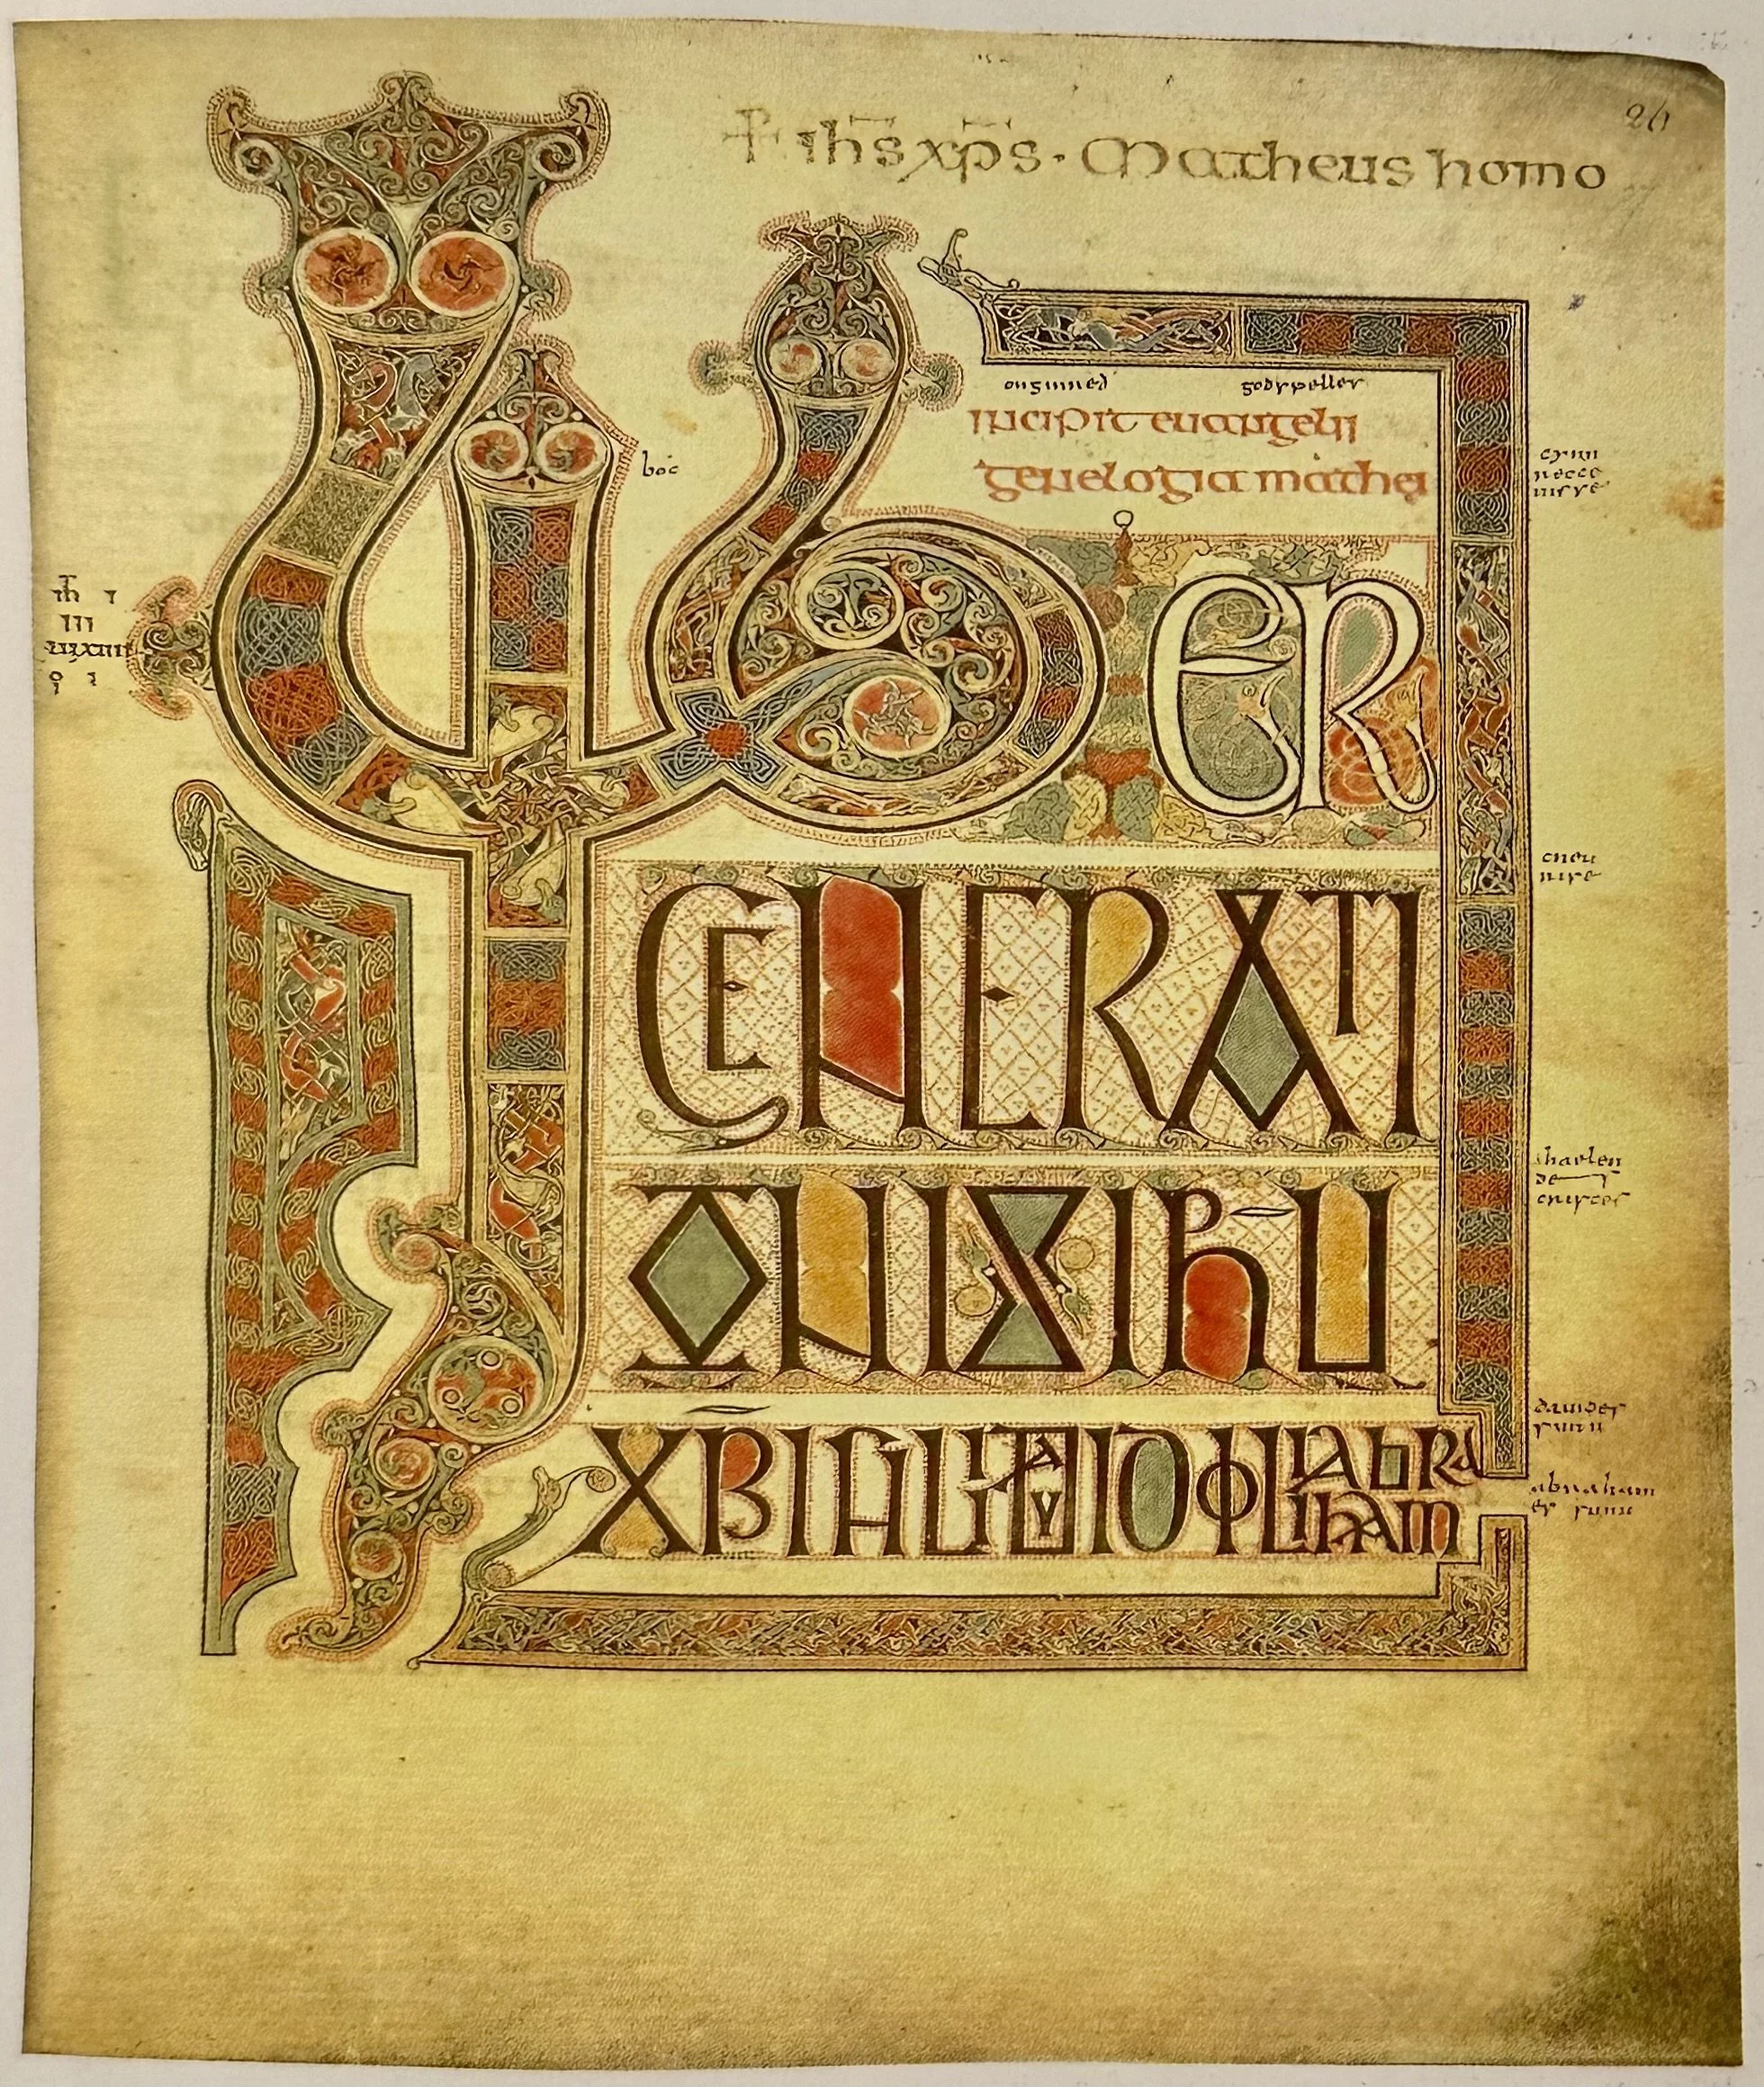 26
+ ihs xps · Matheus homo
onginned godspelles
incipit euangelii
genelogia mathei
boc
LIBER
GENERATI
ONIS IHU
XRI FILII DAVID FILII ABRA
HAM
cneu
nise
haelen
de
cristes
dauides
sunu
abraham
es sunu